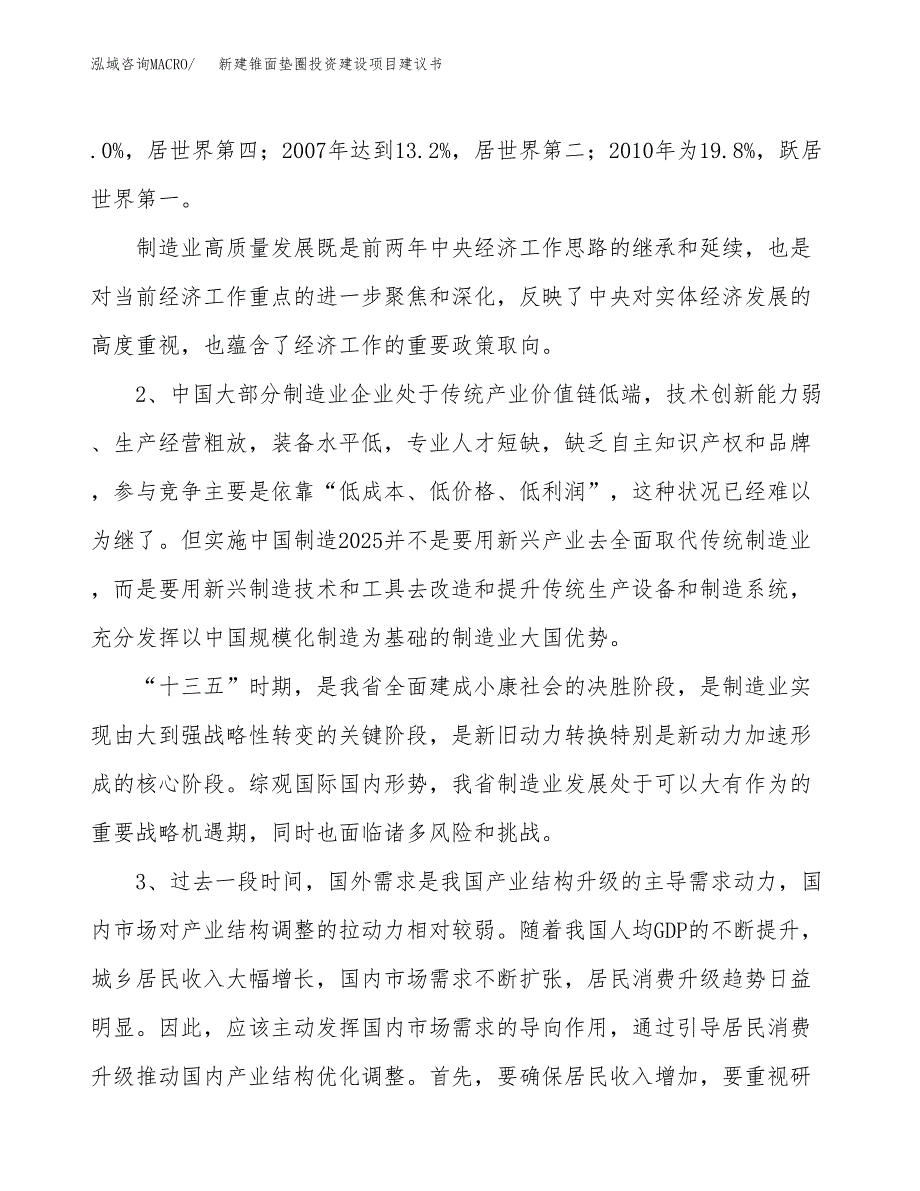 泓域咨询MACRO/ 新建锥面垫圈投资建设项目建议书
.0%，居世界第四；2007年达到13.2%，居世界第二；2010年为19.8%，跃居
世界第一。
制造业高质量发展既是前两年中央经济工作思路的继承和延续，也是
对当前经济工作重点的进一步聚焦和深化，反映了中央对实体经济发展的
高度重视，也蕴含了经济工作的重要政策取向。
2、中国大部分制造业企业处于传统产业价值链低端，技术创新能力弱
、生产经营粗放，装备水平低，专业人才短缺，缺乏自主知识产权和品牌
，参与竞争主要是依靠“低成本、低价格、低利润”，这种状况已经难以
为继了。但实施中国制造2025并不是要用新兴产业去全面取代传统制造业
，而是要用新兴制造技术和工具去改造和提升传统生产设备和制造系统，
充分发挥以中国规模化制造为基础的制造业大国优势。
“十三五”时期，是我省全面建成小康社会的决胜阶段，是制造业实
现由大到强战略性转变的关键阶段，是新旧动力转换特别是新动力加速形
成的核心阶段。综观国际国内形势，我省制造业发展处于可以大有作为的
重要战略机遇期，同时也面临诸多风险和挑战。
3、过去一段时间，国外需求是我国产业结构升级的主导需求动力，国
内市场对产业结构调整的拉动力相对较弱。随着我国人均GDP的不断提升，
城乡居民收入大幅增长，国内市场需求不断扩张，居民消费升级趋势日益
明显。因此，应该主动发挥国内市场需求的导向作用，通过引导居民消费
升级推动国内产业结构优化调整。首先，要确保居民收入增加，要重视研